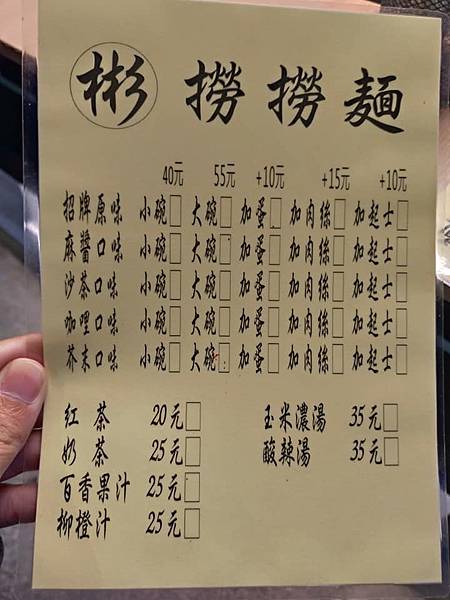 彬 撈撈麵
40元 55元 +10元 +15元 +10元
招牌原味 小碗□ 大碗□ 加蛋□ 加肉絲□ 加起士□
麻醬口味 小碗□ 大碗□ 加蛋□ 加肉絲□ 加起士□
沙茶口味 小碗□ 大碗□ 加蛋□ 加肉絲□ 加起士□
咖哩口味 小碗□ 大碗□ 加蛋□ 加肉絲□ 加起士□
芥末口味 小碗□ 大碗□ 加蛋□ 加肉絲□ 加起士□
紅茶 20元□ 玉米濃湯 35元□
奶茶 25元□ 酸辣湯 35元□
百香果汁 25元□
柳橙汁 25元□